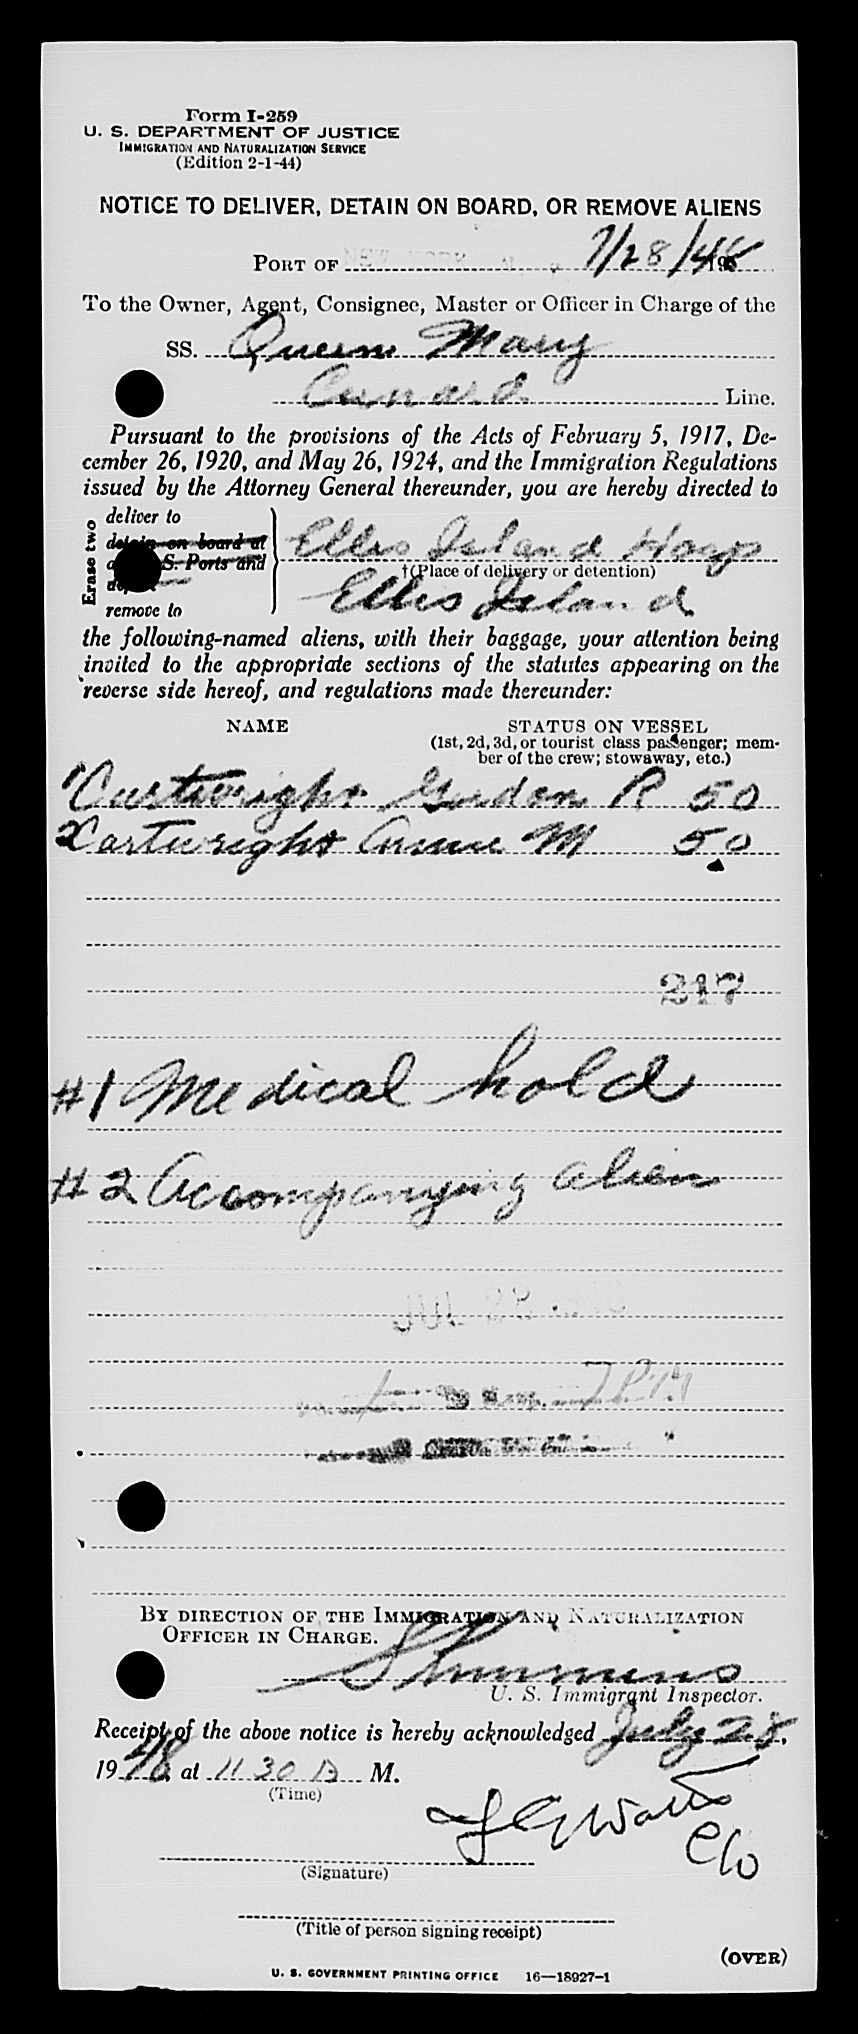 Form I-259
U. S. DEPARTMENT OF JUSTICE
IMMIGRATION AND NATURALIZATION SERVICE
(Edition 2-1-44)
NOTICE TO DELIVER, DETAIN ON BOARD, OR REMOVE ALIENS
PORT OF NEW YORK 7/28/48
To the Owner, Agent, Consignee, Master or Officer in Charge of the
SS. Queen Mary
Cunard Line.
Pursuant to the provisions of the Acts of February 5, 1917, De-
cember 26, 1920, and May 26, 1924, and the Immigration Regulations
issued by the Attorney General thereunder, you are hereby directed to
Erase two
deliver to
detain on board at
S. Ports and
remove to
Ellis Island Hosp
†(Place of delivery or detention)
Ellis Island
the following-named aliens, with their baggage, your attention being
invited to the appropriate sections of the statutes appearing on the
reverse side hereof, and regulations made thereunder:
NAME STATUS ON VESSEL
(1st, 2d, 3d, or tourist class passenger; mem-
ber of the crew; stowaway, etc.)
1 Cartwright Gordon R 50
2 Cartwright Annie M 50
217
#1 Medical hold
#2 Accompanying alien
JUL 28
BY DIRECTION OF THE IMMIGRATION AND NATURALIZATION
OFFICER IN CHARGE.
Simmins
U. S. Immigrant Inspector.
Receipt of the above notice is hereby acknowledged July 28,
1948 at 11 30 A M.
(Time)
Watts
c/o
(Signature)
(Title of person signing receipt)
(OVER)
U. S. GOVERNMENT PRINTING OFFICE 16—18927-1